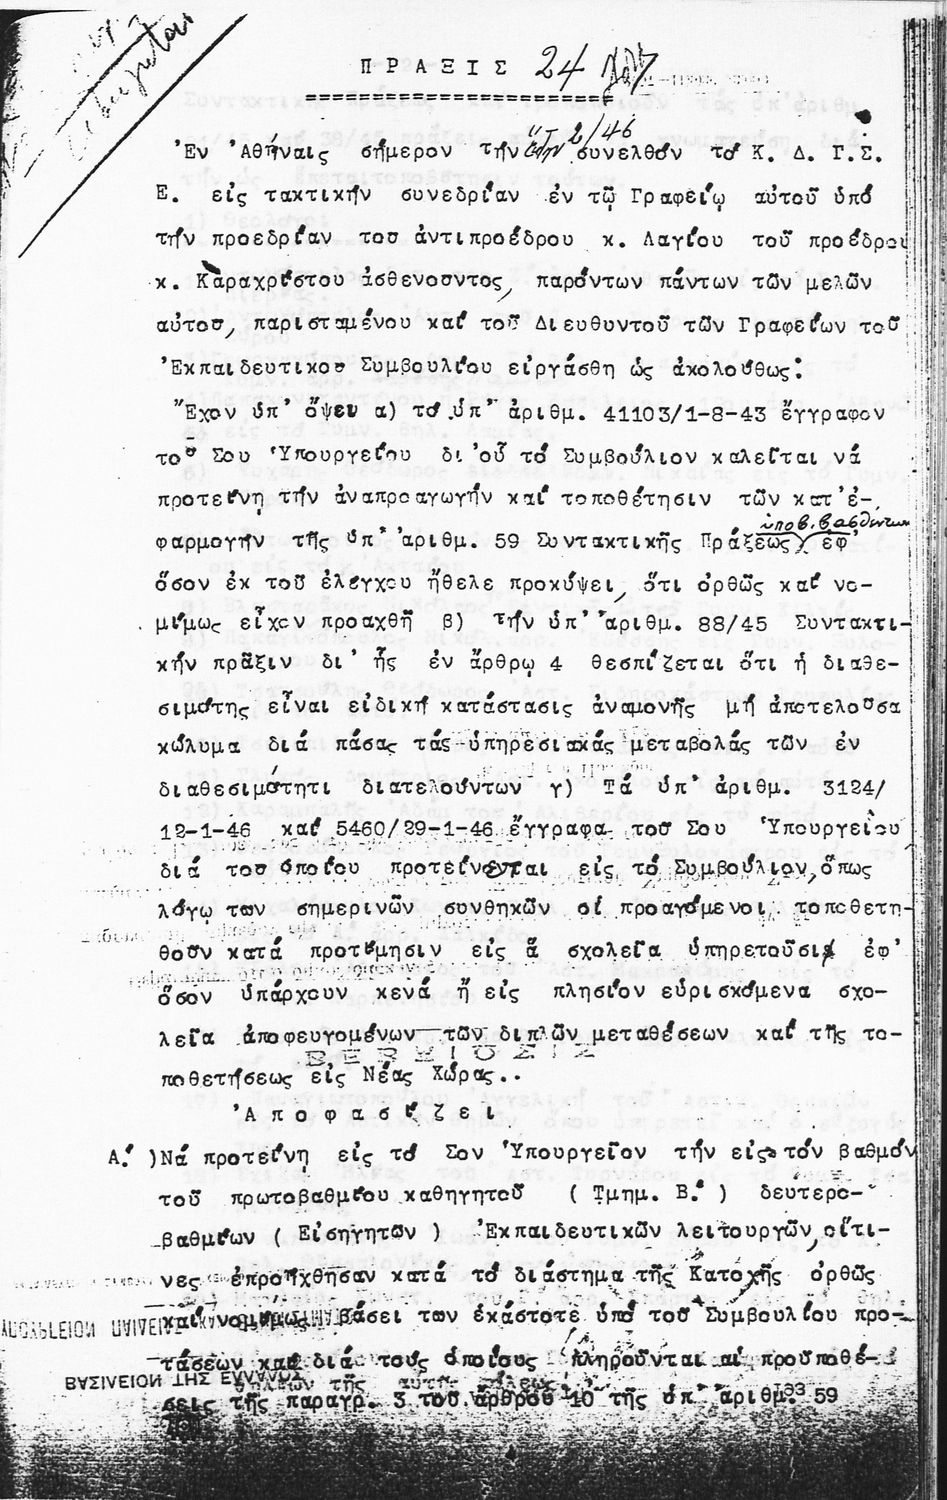 ΠΡΑΞΙΣ 24
Ἐν Ἀθήναις σήμερον τήν 2/46 συνελθόν τό Κ. Δ. Γ. Σ.
Ε. εἰς τακτικήν συνεδρίαν ἐν τῷ Γραφείῳ αὐτοῦ ὑπό
τήν προεδρίαν του ἀντιπροέδρου κ. Λαγίου τοῦ προέδρου
κ. Καραχρίστου ἀσθενουντος, παρόντων πάντων τῶν μελῶν
αὐτου, παρισταμένου καί τοῦ Διευθυντοῦ τῶν Γραφείων τοῦ
Ἐκπαιδευτικου Συμβουλίου εἰργάσθη ὡς ἀκολούθως:
Ἔχον ὑπ' ὄψει α) τό ὑπ' ἀριθμ. 41103/1-8-43 ἔγγραφον
τοῦ Σου Ὑπουργείου δι'οὗ τό Συμβούλιον καλεῖται νά
προτείνη τήν ἀναπροαγωγήν καί τοποθέτησιν τῶν κατ'ἐ-
φαρμογήν τῆς ὑπ' ἀριθμ. 59 Συντακτικῆς Πράξεως ὑποβιβασθέντων ἐφ'
ὅσον ἐκ τοῦ ἐλέγχου ἤθελε προκύψει, ὅτι ὀρθῶς καί νο-
μίμως εἶχον προαχθῆ β) Τήν ὑπ' ἀριθμ. 88/45 Συντακτι-
κήν πρᾶξιν δι' ἧς ἐν ἄρθρῳ 4 θεσπίζεται ὅτι ἡ διαθε-
σιμότης εἶναι εἰδική κατάστασις ἀναμονῆς μή ἀποτελοῦσα
κώλυμα διά πάσας τάς ὑπηρεσιακάς μεταβολάς τῶν ἐν
διαθεσιμότητι διατελούντων γ) Τά ὑπ' ἀριθμ. 3124/
12-1-46 καί 5460/29-1-46 ἔγγραφα του Σου Ὑπουργείου
διά του ὁποίου προτείνεται εἰς τό Συμβούλιον, ὅπως
λόγῳ των σημερινῶν συνθηκῶν οἱ προαγόμενοι τοποθετη-
θοῦν κατά προτίμησιν εἰς ἅ σχολεῖα ὑπηρετοῦσι ἐφ'
ὅσον ὑπάρχουν κενά ἤ εἰς πλησίον εὑρισκόμενα σχο-
λεῖα ἀποφευγομένων τῶν διπλῶν μεταθέσεων καί τῆς το-
ποθετήσεως εἰς Νέας Χώρας..
Ἀποφασίζει
Α.' ) Νά προτείνη εἰς τό Σον Ὑπουργεῖον τήν εἰς τόν βαθμόν
τοῦ πρωτοβαθμίου καθηγητοῦ ( Τμημ. Β.' ) δευτερο-
βαθμίων ( Εἰσηγητῶν ) Ἐκπαιδευτικῶν λειτουργῶν, οἵτι-
νες ἐπροήχθησαν κατά τό διάστημα τῆς Κατοχῆς ὀρθῶς
καί νομίμως βάσει των ἑκάστοτε ὑπό τοῦ Συμβουλίου προ-
τάσεων καί διά τούς ὁποίους πληροῦνται αἱ προϋποθέ-
σεις τῆς παραγρ. 3 τοῦ ἄρθρου 10 τῆς ὑπ' ἀριθμ. 59
ΒΑΣΙΛΕΙΟΝ ΤΗΣ ΕΛΛΑΔΟΣ